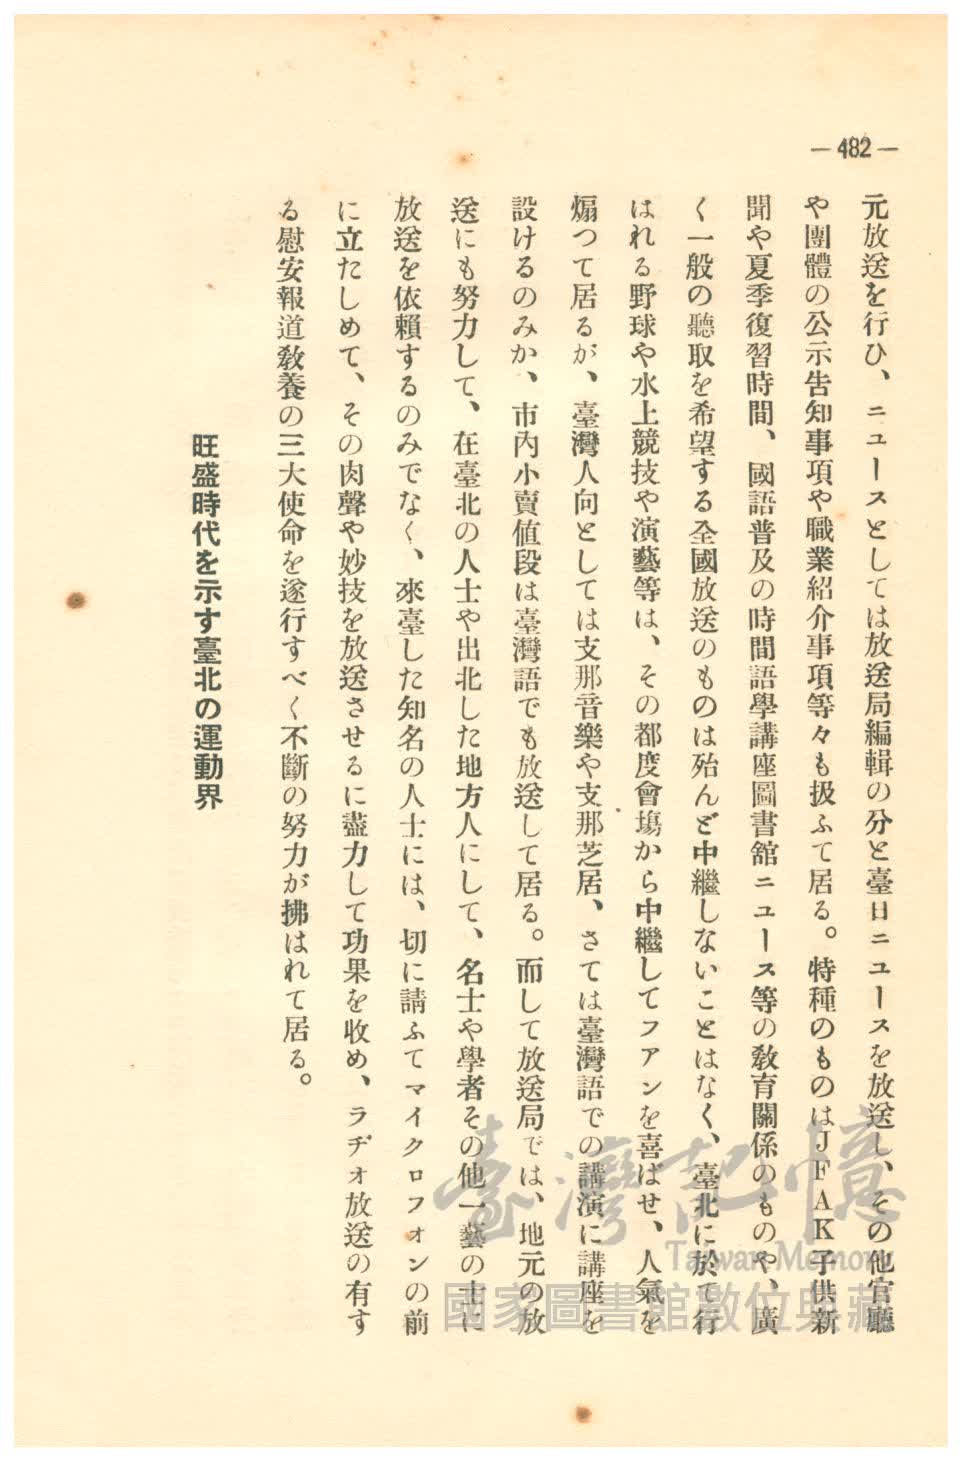 — 482 —
元放送を行ひ、ニユースとしては放送局編輯の分と臺日ニユースを放送し、その他官廳
や團體の公示告知事項や職業紹介事項等々も扱ふて居る。特種のものはJFAK子供新
聞や夏季復習時間、國語普及の時間語學講座圖書舘ニユース等の敎育關係のものや、廣
く一般の聽取を希望する全國放送のものは殆んど中繼しないことはなく、臺北に於て行
はれる野球や水上競技や演藝等は、その都度會塲から中繼してフアンを喜ばせ、人氣を
煽つて居るが、臺灣人向としては支那音樂や支那芝居、さては臺灣語での講演に講座を
設けるのみか、市內小賣値段は臺灣語でも放送して居る。而して放送局では、地元の放
送にも努力して、在臺北の人士や出北した地方人にして、名士や學者その他一藝の士に
放送を依賴するのみでなく、來臺した知名の人士には、切に請ふてマイクロフォンの前
に立たしめて、その肉聲や妙技を放送させるに盡力して功果を收め、ラヂオ放送の有す
る慰安報道敎養の三大使命を遂行すべく不斷の努力が拂はれて居る。
旺盛時代を示す臺北の運動界
臺灣記憶
Taiwan Memory
國家圖書館數位典藏